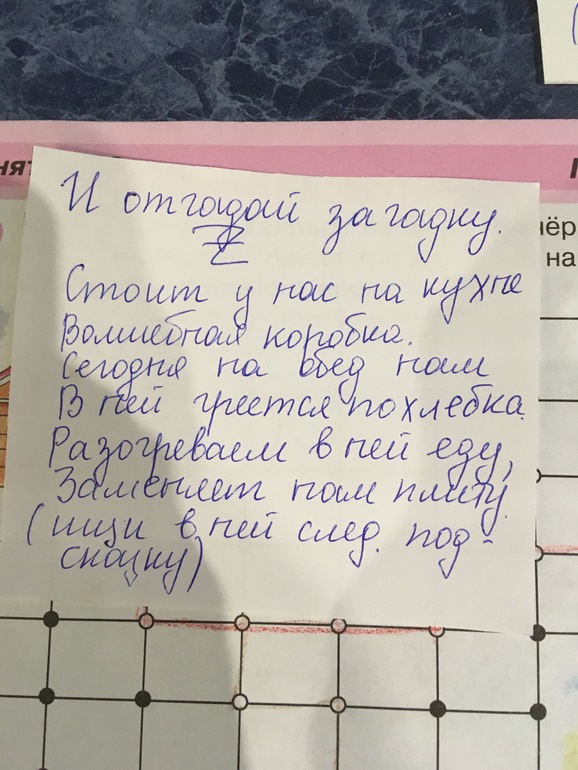 нят
И отгадай загадку.
Стоит у нас на кухне
Волшебная коробка.
Сегодня на обед нам
В ней греется похлебка.
Разогреваем в ней еду,
Заменяет нам плиту.
(ищи в ней след. под-
сказку)
чёр
на